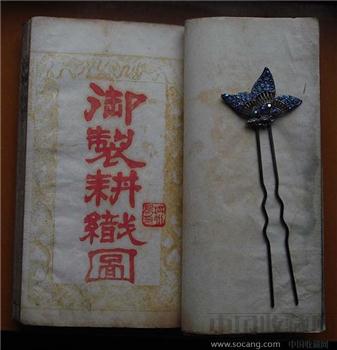 御製耕織圖
www.socang.com 中国收藏网